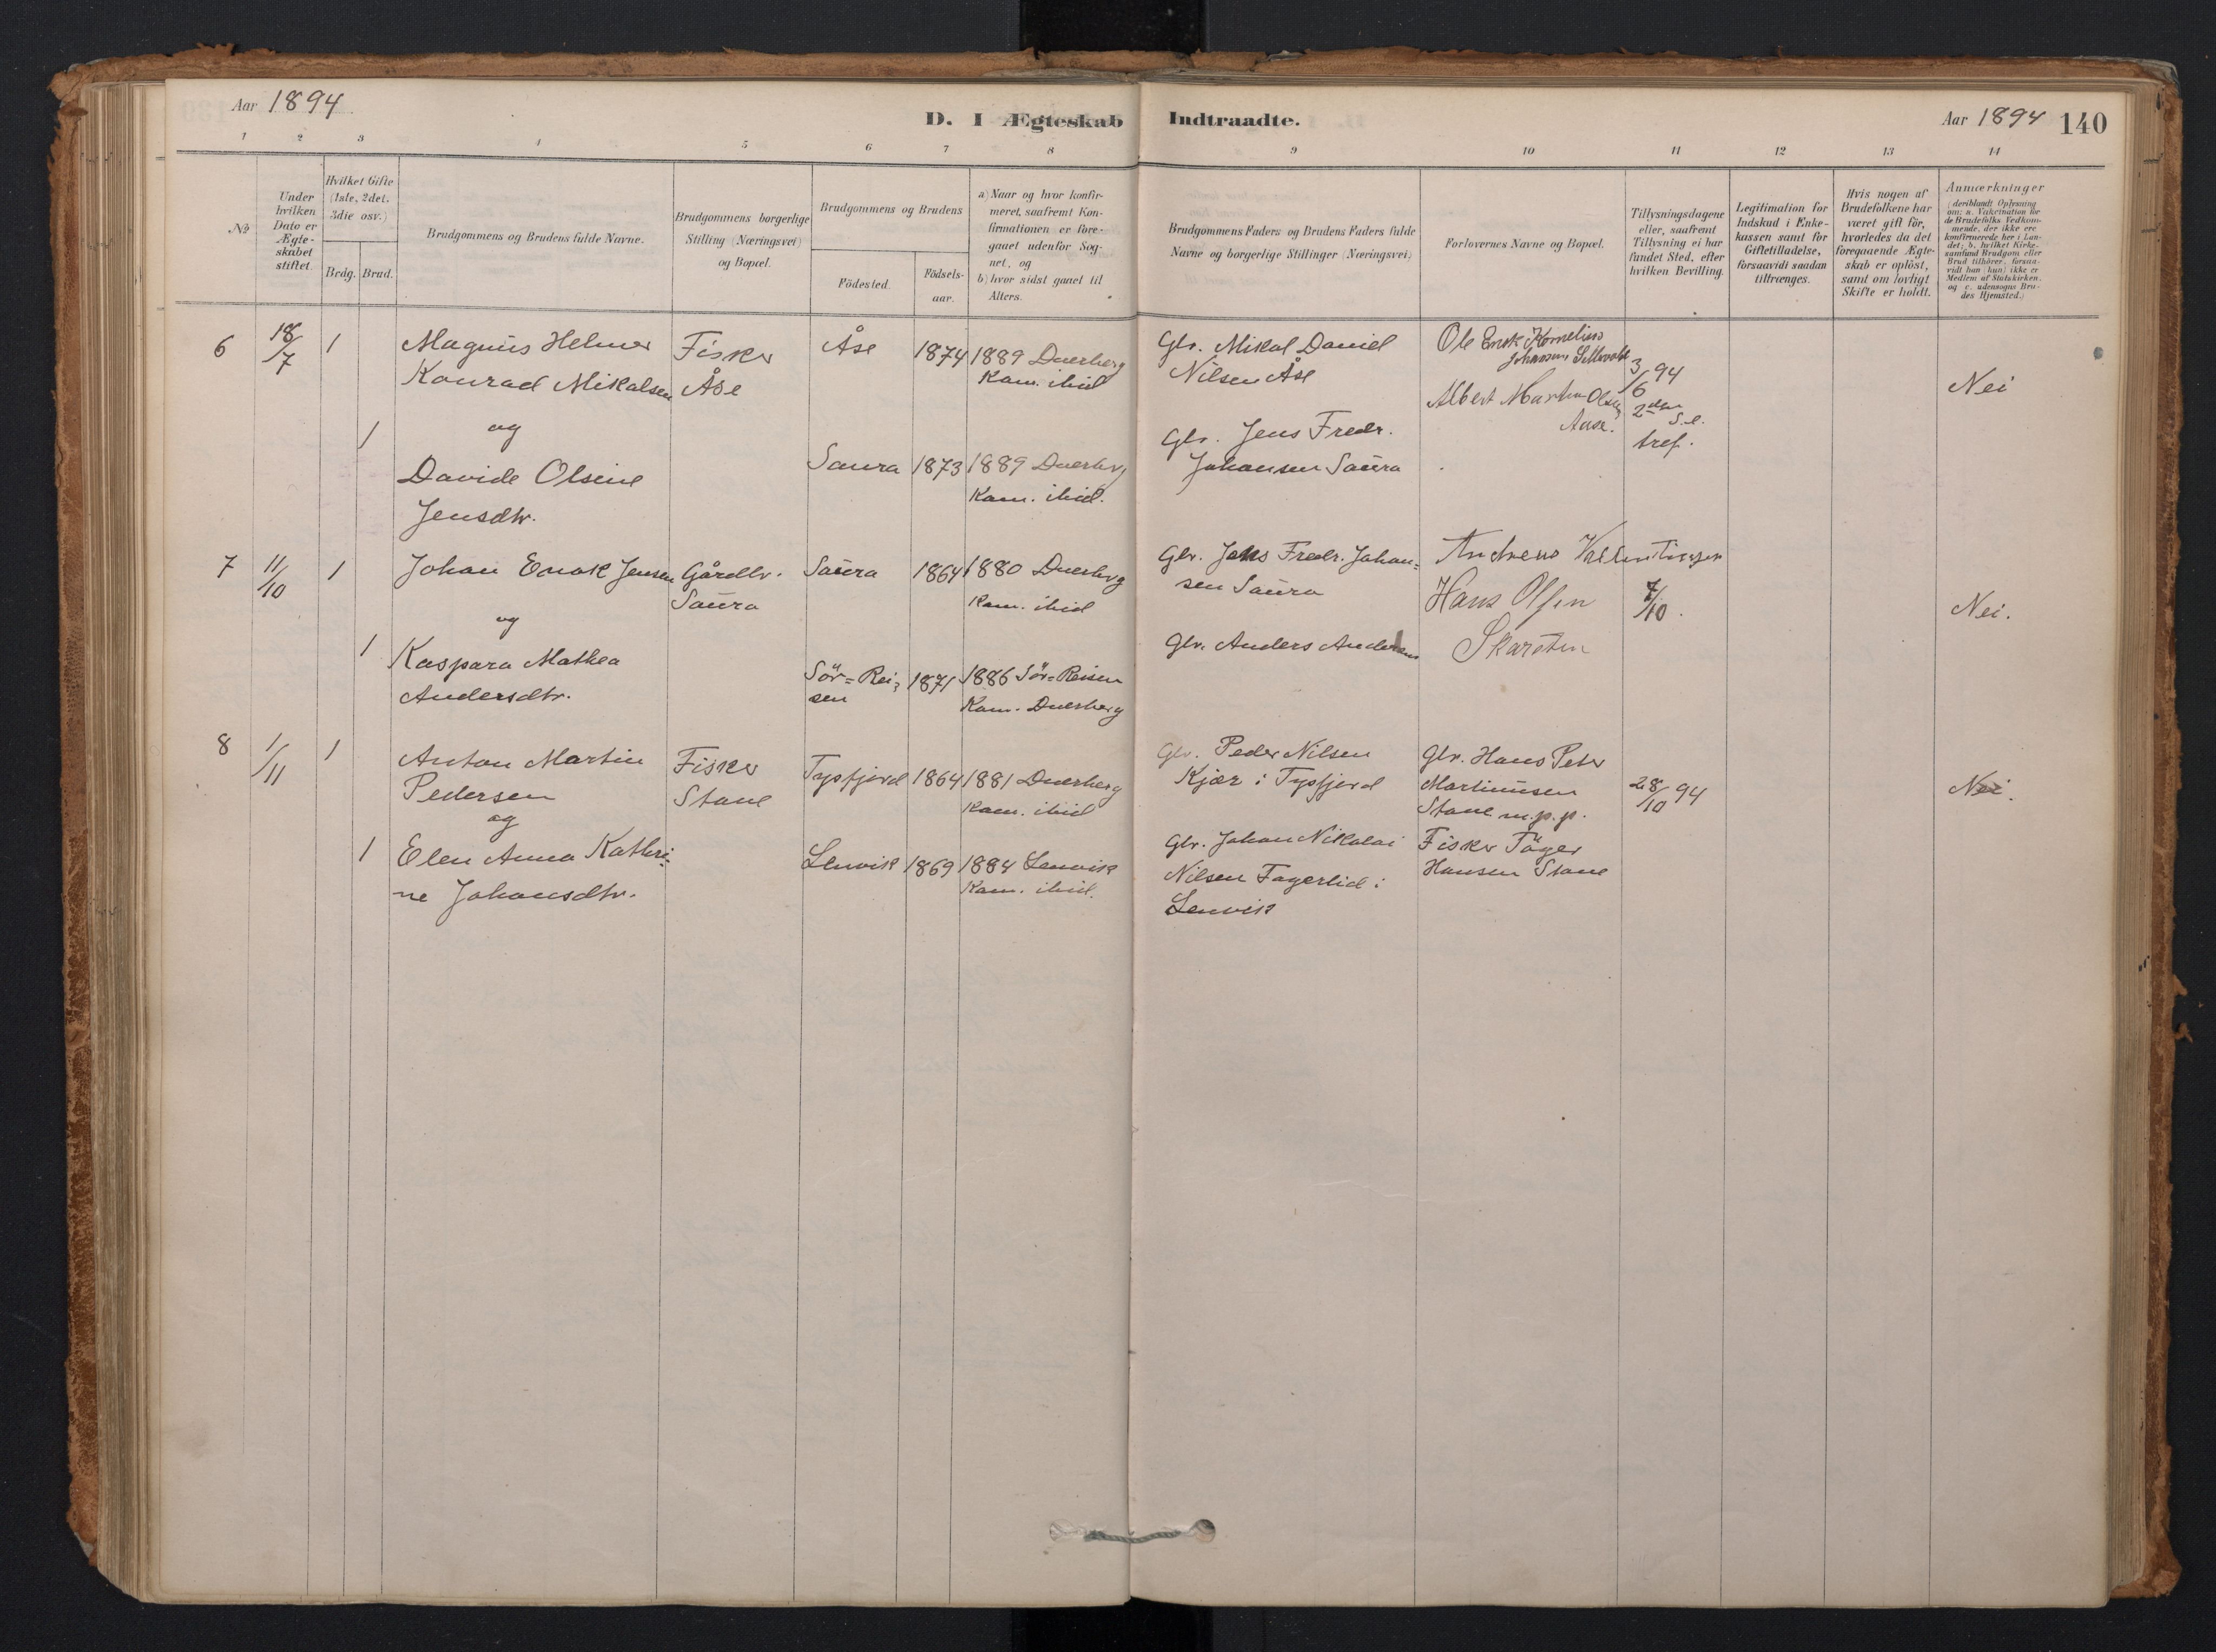 Aar 1894
D. I Ægteskab Indtraadte.
Aar 1894 140
1 2 3 4 5 6 7 8 9 10 11 12 13 14
№
Under hvilken Dato er Ægte-skabet stiftet.
Hvilket Gifte (1ste, 2det, 3die osv.)
Brdg. Brud.
Brudgommens og Brudens fulde Navne.
Brudgommens borgerlige Stilling (Næringsvei) og Bopæl.
Brudgommens og Brudens
Födested.
Födsels-aar.
a) Naar og hvor konfir-
meret, saafremt Kon-
firmationen er fore-
gaaet udenfor Sog-
net, og
b) hvor sidst gaaet til
Alters.
Brudgommens Faders og Brudens Faders fulde
Navne og borgerlige Stillinger (Næringsvei)
Forlovernes Navne og Bopæl.
Tillysningsdagene
eller, saafremt
Tillysning ei har
fundet Sted, efter
hvilken Bevilling.
Legitimation for
Indskud i Enke-
kassen samt for
Giftetilladelse,
forsaavidt saadan
tiltrænges.
Hvis nogen af
Brudefolkene har
været gift för,
hvorledes da det
foregaaende Ægte-
skab er oplöst,
samt om lovligt
Skifte er holdt.
Anmærkninger
(deriblandt Oplysning
om: a. Vakcination for
de Brudefolks Vedkom-
mende, der ikke ere
konfirmerede her i Lan-
det; b. hvilket Kirke-
samfund Brudgom eller
Brud tilhörer, forsaa-
vidt han (hun) ikke er
Medlem af Statskirken,
og c. udensogns Bru-
des Hjemsted.)
6 18/7 1
Magnus Helmer
Konrad Mikalsen
og
1
Davide Olsine
Jensdtr.
Fisker
Åse
Åse 1874 1889 Dverberg
Kom. ibid
Saura 1873 1889 Dverbrg
Kom. ibid.
Gbr. Mikal Daniel
Nilsen Åse
Gbr. Jens Fredr.
Johansen Saura
Ole Enok Kornelius
Johansen
Albert Martin Olsen
Aase.
3/6 94
2den
S. e.
tref.
Nei
7 11/10 1
Johan Enok Jensen
og
1
Kaspara Mathea
Andersdtr.
Gårdbr.
Saura
Saura 1864 1880 Dverbrg
Kom. ibid
Sör=Rei=
sen 1871 1886 Sör=Reisen
Kom. Dverberg
Gbr. Jens Fredr. Johan=
sen Saura
Gbr. Anders Andersen
Andreas Vallentinsen
Hans Olsen
Skarsten
7/10.
Nei.
8 1/11 1
Anton Martin
Pedersen
og
1
Elen Anna Kathri-
ne Johansdtr.
Fisker
Stave
Tysfjord 1864 1881 Dverberg
Kom. ibid
Lenvik 1869 1884 Lenvik
Kom. ibid.
Gbr. Peder Nilsen
Kjær i Tysfjord
Gbr. Johan Nikolai
Nilsen Fagerlid i
Lenvik
Gbr. Hans Peter
Martinusen
Stave m.p.p.
Fisker Töger
Hansen Stave
28/10 94
Nei.